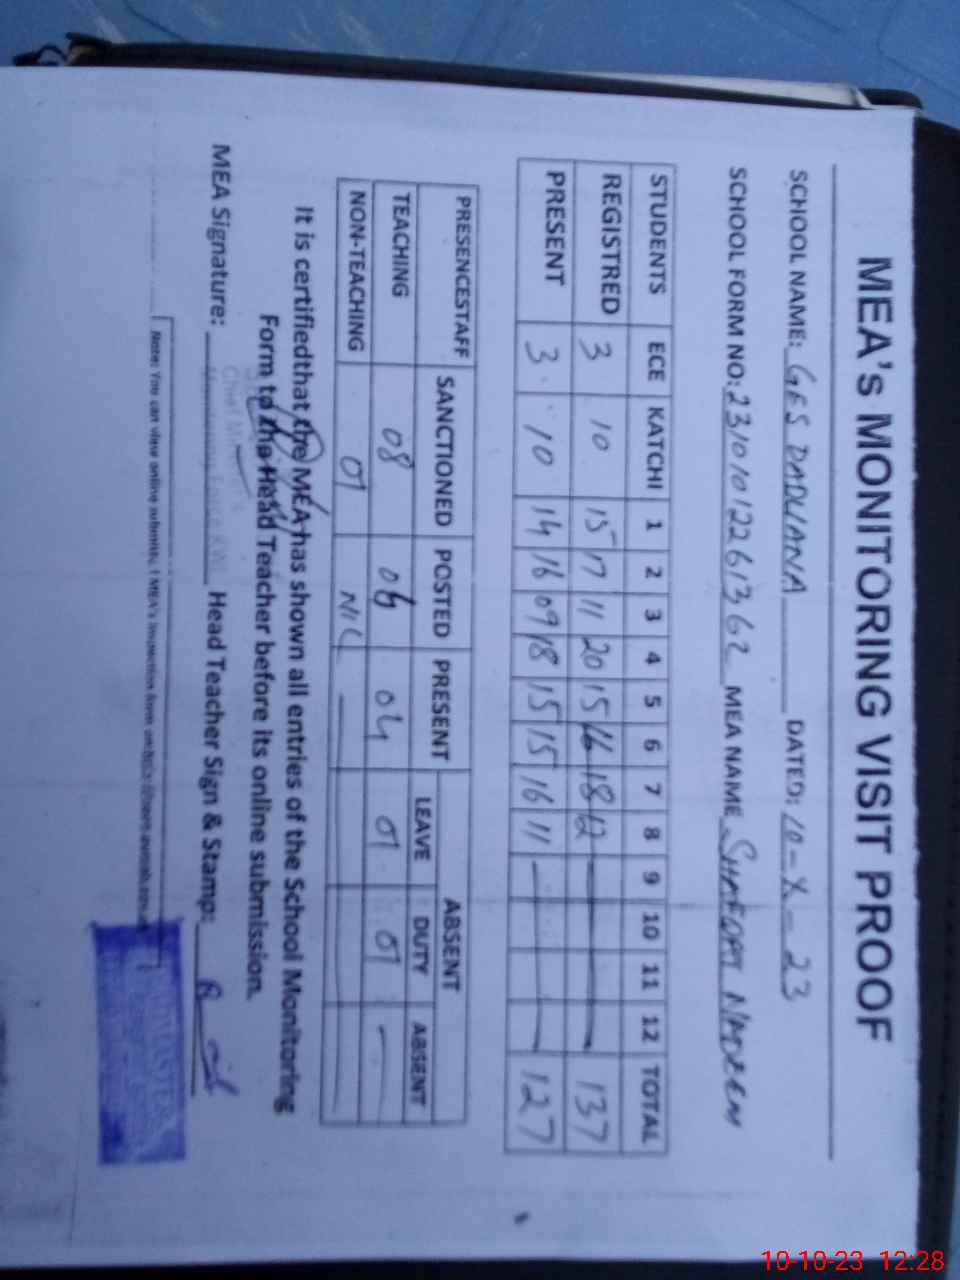 MEA's MONITORING VISIT PROOF
SCHOOL NAME: GES DADUANA DATED: 10-X-23
SCHOOL FORM NO: 23101012261362 MEA NAME SHAFQAT NADEEM
STUDENTS ECE KATCHI 1 2 3 4 5 6 7 8 9 10 11 12 TOTAL
REGISTRED 3 10 15 17 11 20 15 16 18 12 137
PRESENT 3 10 14 16 09 18 15 15 16 11 127
PRESENCESTAFF SANCTIONED POSTED PRESENT ABSENT
LEAVE DUTY ABSENT
TEACHING 08 06 04 01 01 -
NON-TEACHING 01 NIL
It is certifiedthat the MEA has shown all entries of the School Monitoring
Form to the Head Teacher before its online submission.
MEA Signature: Head Teacher Sign & Stamp:
Note: You can view online submitted MEA's Inspection form on
10-10-23 12:28